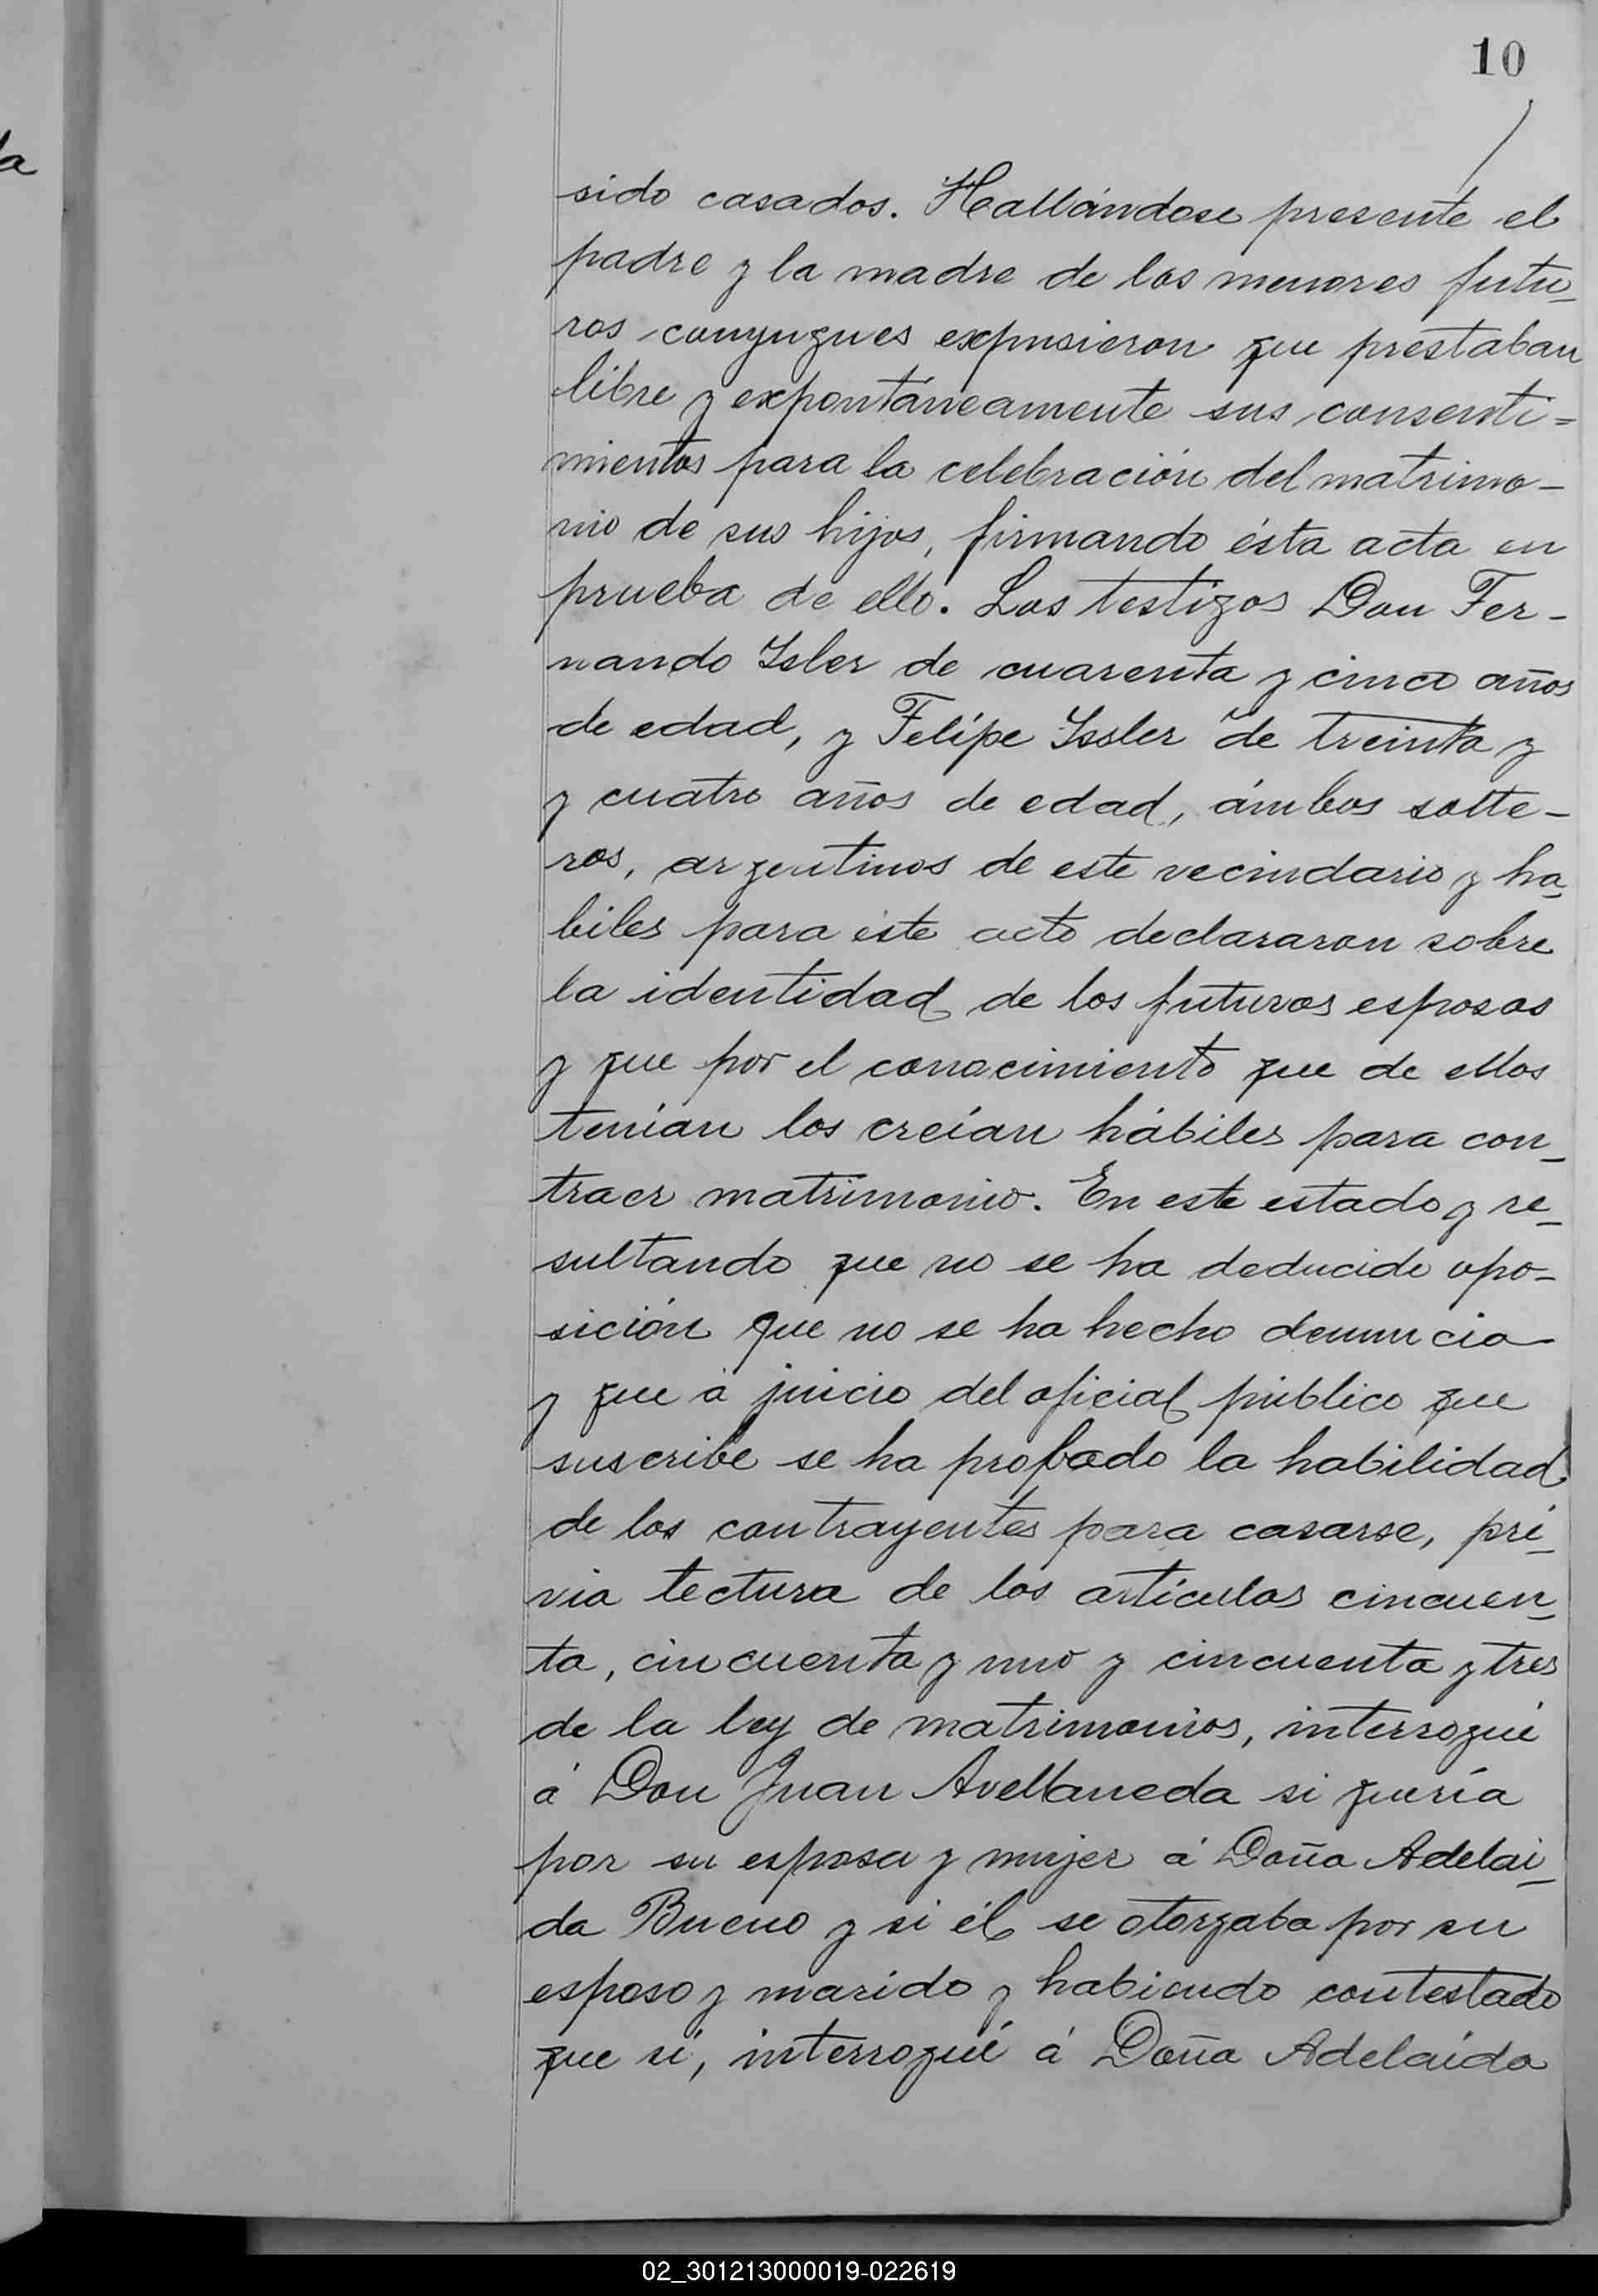 10
la
sido casados. Hallándose presente el
padre y la madre de los menores futu_
ros conyugues expusieron que prestaban
libre y expontáneamente sus consenti=
mientos para la celebración del matrimo-
nio de sus hijos, firmando ésta acta en
prueba de ello. Los testigos Don Fer-
nando Isler de cuarenta y cinco años
de edad, y Felípe Issler de treinta y
y cuatro años de edad, ámbos solte-
ros, argentinos de este vecindario y ha_
biles para éste acto declararon sobre
la identidad de los futuros esposos
y que por el conocimiento que de ellos
tenían los creían hábiles para con_
traer matrimonio. En este estado y re_
sultando que no se ha deducido opo-
sición que no se ha hecho denuncia
y que á juicio del oficial público que
suscribe se ha probado la habilidad
de los contrayentes para casarse, pré_
via lectura de los artículos cincuen_
ta, cincuenta y uno y cincuenta y tres
de la ley de matrimonios, interrogué
á Don Juan Avellaneda si quería
por su esposa y mujer á Doña Adelai_
da Bueno y si él se otorgaba por su
esposo y marido y habiendo contestado
que sí, interrogué á Doña Adelaida
02_301213000019-022619